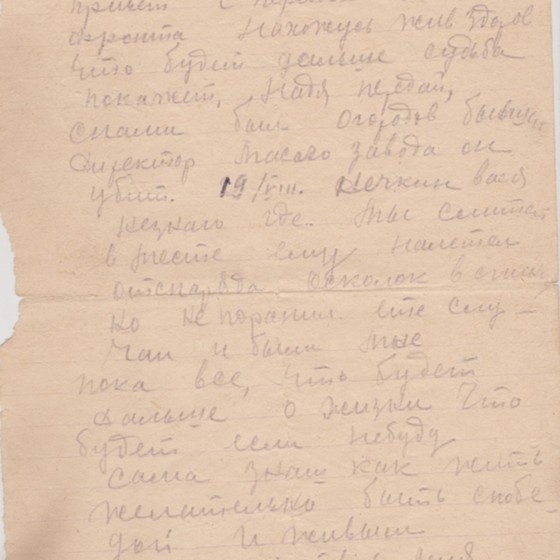 привет с
фронта Нахожусь жив здоров
Что будет дальше судьба
покажет, Надя передай,
снами был Огородов бывший
директор масло завода он
убит. 19/VIII. Нечкин вася
незнаю где. Мы с
в месте ему
отснаряда осколок в
но не поранил. еще слу-
чаи и были мне
пока все, Что будет
дальше о жизни Что
будет если небуду
сама знаеш как жить
желательно быть с побе-
дой и живыми